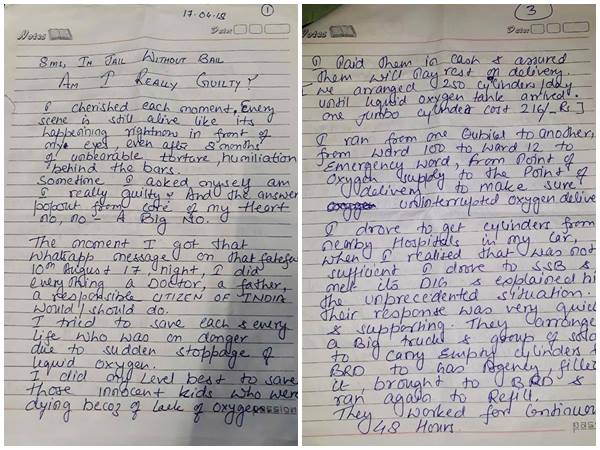 17-04-18
1
Notes
Date:
8ms, In Jail Without Bail
Am I Really Guilty?
I cherished each moment, Every
scene is still alive like its
happening rightnow in front of
my eyes, even after 8 months
of unbearable torture, humiliation
behind the bars.
Sometime I asked myself am
I really guilty? And the answer
popout from core of my Heart
no, no - A Big No.
The moment I got that
whatsapp message on that fateful
10th August 17 night, I did
everything a Doctor, a father,
a responsible CITIZEN OF INDIA
would/should do.
I tried to save each & every
life who was on danger
due to sudden stoppage of
liquid oxygen.
I did my level best to save
those innocent kids who were
dying becoz of lack of oxygen
3
Notes
Date:
I Paid them in cash & assured
them will pay rest on delivery.
[We arranged 250 cylinders/day
until liquid oxygen tank arrived.
one Jumbo cylinder cost 216/- Rs]
I ran from one Cubical to another,
from Ward 100 to Ward 12 to
Emergency Word, from Point of
Oxygen supply to the Point of
delivery to make sure
oxygen uninterrupted oxygen delive
I drove to get cylinders from
nearby Hospitals in my Car,
when I realized that was not
sufficient I drove to SSB &
met its DIG & explained hi
the unprecedented situation.
Their response was very quic
& supporting. They arrange
a Big truck & group of sold
to carry empty cylinders f
BRD to Gas Agency, filled
it, brought to BRD &
ran again to Refill.
They worked for Continuo
48 Hours.